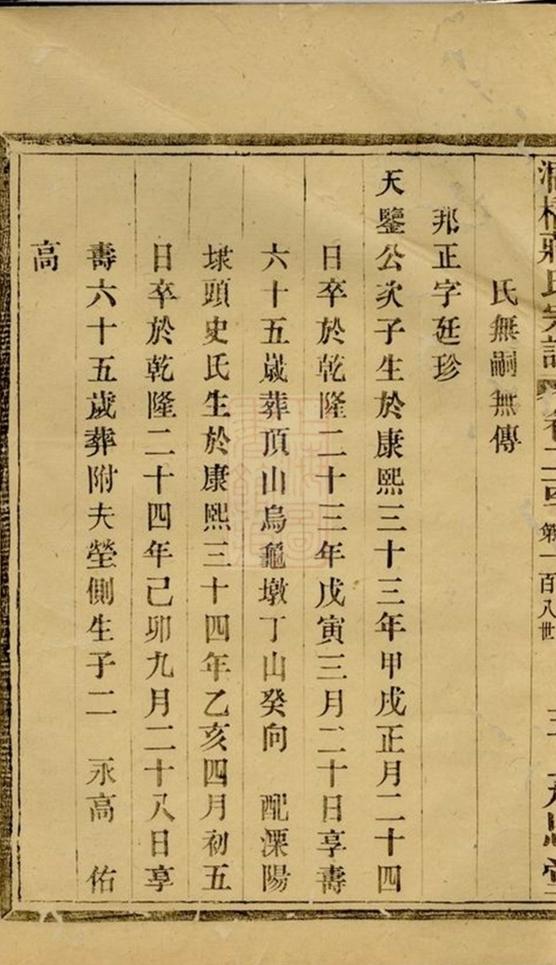 蔣氏宗譜 第一百八世 三
氏無嗣無傳
邦正字廷珍
天鑒公次子生於康熙三十三年甲戌正月二十四
日卒於乾隆二十三年戊寅三月二十日享壽
六十五歲葬頂山烏龜墩丁山癸向 配溧陽
埭頭史氏生於康熙三十四年乙亥四月初五
日卒於乾隆二十四年己卯九月二十八日享
壽六十五歲葬附夫塋側生子二 永高 佑
高